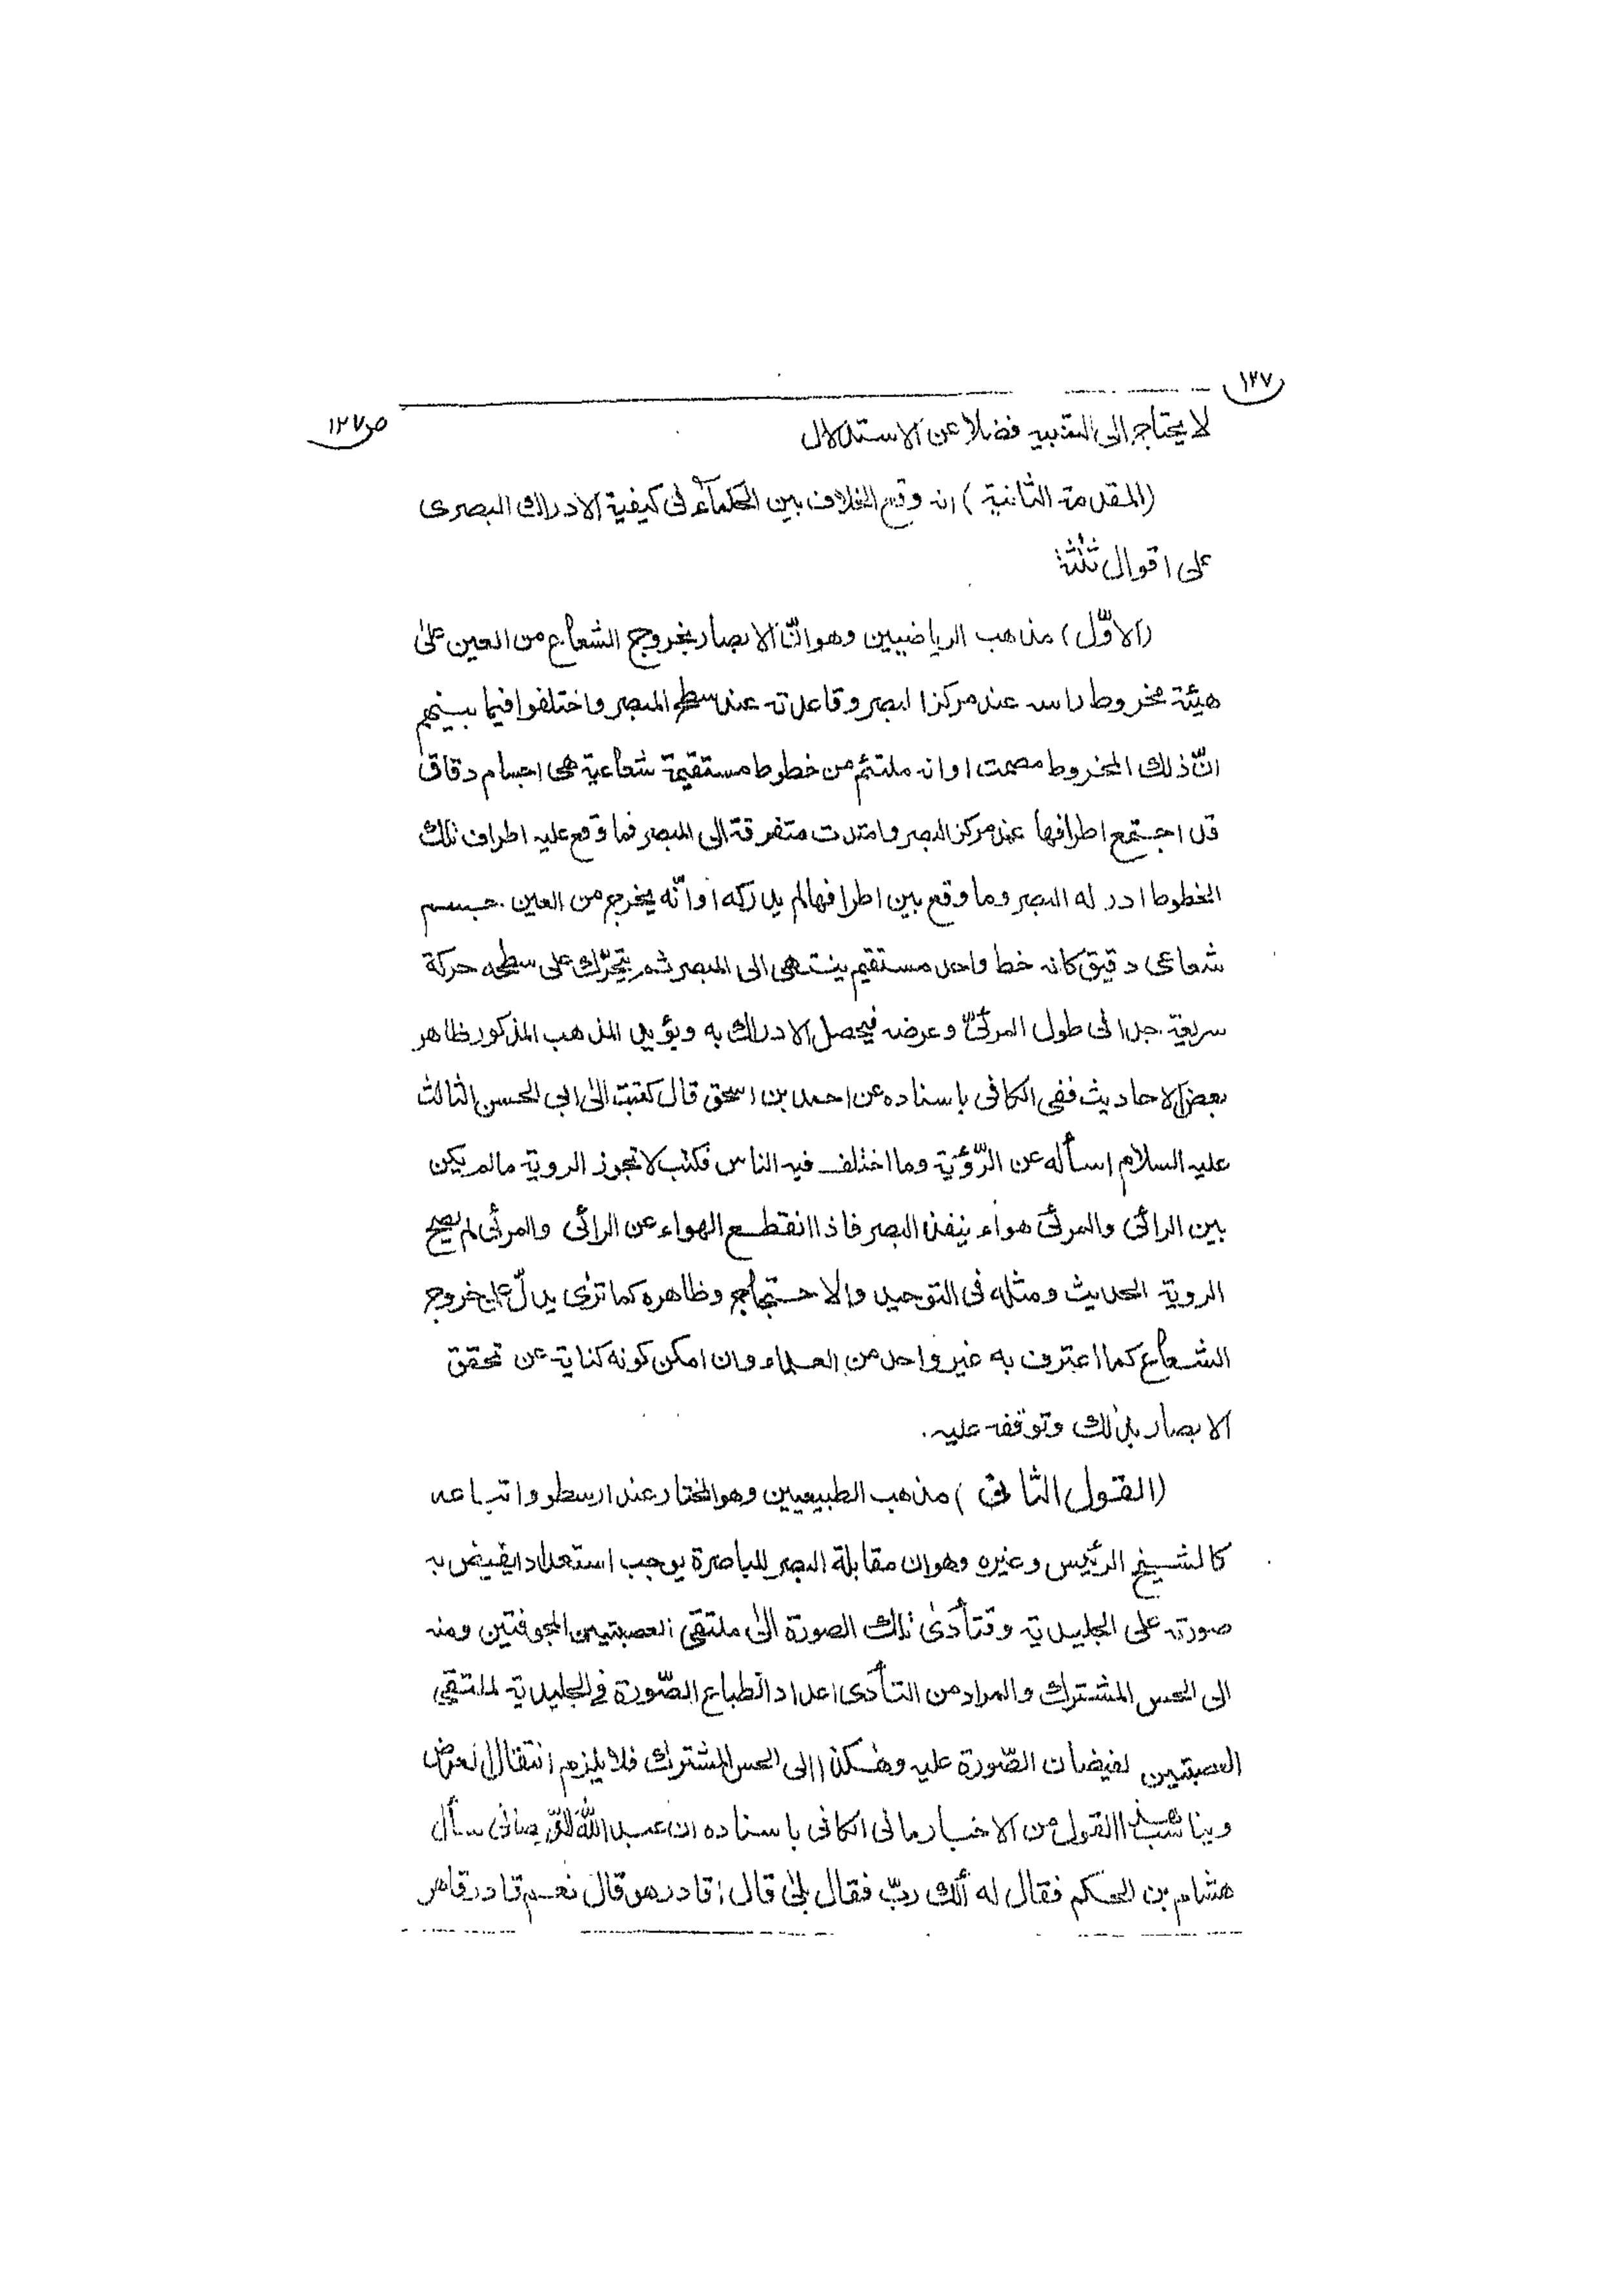 ١٢٧
ص١٢٧
لا يحتاج الى التنبيه فضلا عن الاستدلال
(المقدمة الثانية) انه وقع الخلاف بين الحكمآء فى كيفية الادراك البصرى
على اقوال ثلثة
(الاوّل) مذهب الرياضيين وهو انّ الابصار بخروج الشعاع من العين على
هيئة مخروط راسه عند مركز البصر وقاعدته عند سطح المبصر واختلفوا فيما بينهم
انّ ذلك المخروط مصمت او انه ملتئم من خطوط مستقيمة شعاعية هى اجسام دقاق
قد اجتمع اطرافها عند مركز البصر وامتدت متفرقة الى المبصر فما وقع عليه اطراف تلك
الخطوط ادركه البصر وما وقع بين اطرافها لم يدركه او انّه يخرج من العين جسم
شعاعى دقيق كانه خط واحد مستقيم ينتهى الى المبصر ثم يتحرّك على سطحه حركة
سريعة جدا فى طول المرئىّ وعرضه فيحصل الادراك به ويؤيد المذهب المذكور ظاهر
بعض الاحاديث ففى الكافى باسناده عن احمد بن اسحق قال كتبت الى ابى الحسن الثالث
عليه السلام اسأله عن الرّؤية وما اختلف فيه الناس فكتب لا تجوز الروية مالم يكن
بين الرائى والمرئى هواء ينفذ البصر فاذا انقطع الهواء عن الرائى والمرئى لم يصح
الروية الحديث ومثله فى التوحيد والاحتجاج وظاهره كما ترى يدلّ على خروج
الشعاع كما اعترف به غير واحد من العلماء وان امكن كونه كناية عن تحقق
الابصار بذلك وتوقفه عليه.
(القول الثانى) مذهب الطبيعيين وهو المختار عند ارسطو واتباعه
كالشيخ الرئيس وغيره وهو ان مقابلة البصر للباصرة يوجب استعدادا يفيض به
صورته على الجليدية وتتأدى تلك الصورة الى ملتقى العصبتين المجوفتين ومنه
الى الحس المشترك والمراد من التأدى اعداد انطباع الصّورة فى الجليدية لملتقى
العصبتين لفيضان الصّورة عليه وهكذا الى الحس المشترك فلا يلزم انتقال العرض
ويناسب هذا القول من الاخبار ما فى الكافى باسناده ان عبد الله الدّيصانى سأل
هشام بن الحكم فقال له ألك ربّ فقال بلى قال أقادر هو قال نعم قادر قاهر